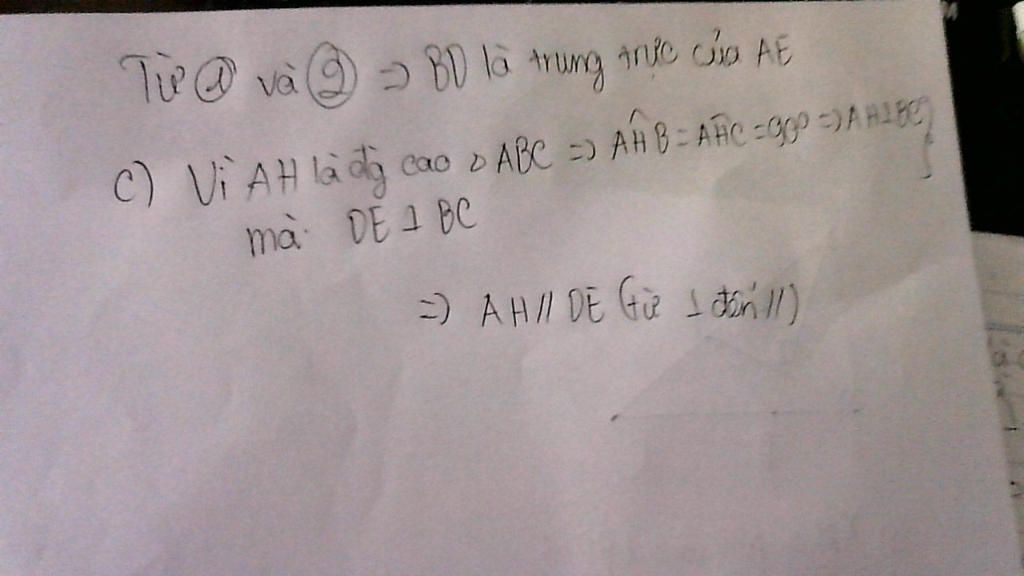 Từ ① và ② => BD là trung trực của AE
c) Vì AH là đg cao △ ABC => AĤB = AĤC = 90° => AH ⊥ BC }
mà DE ⊥ BC
=> AH // DE (từ ⊥ đến //)